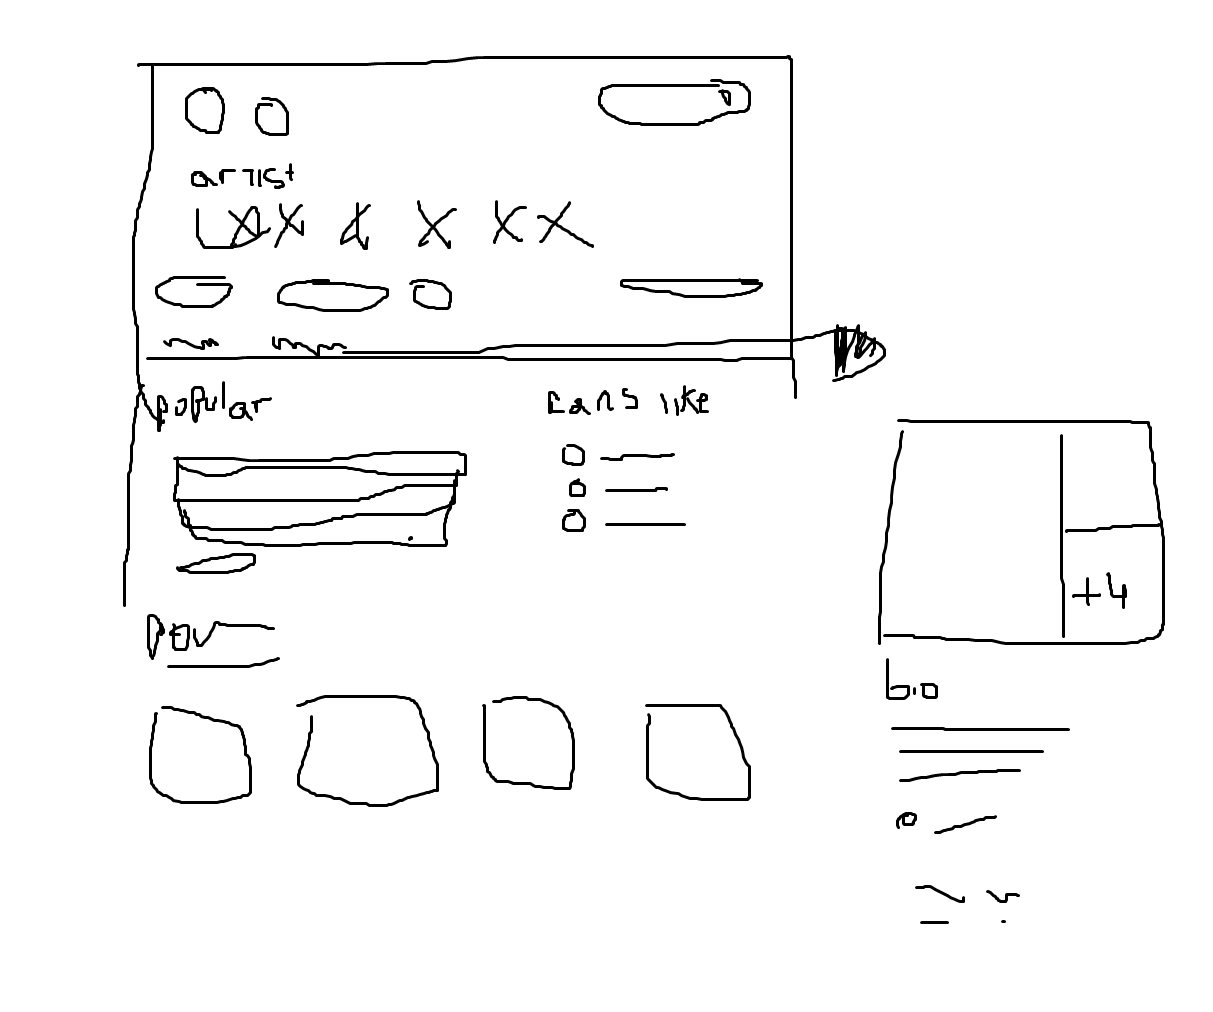 artist
popular
fans like
+4
pov
bio